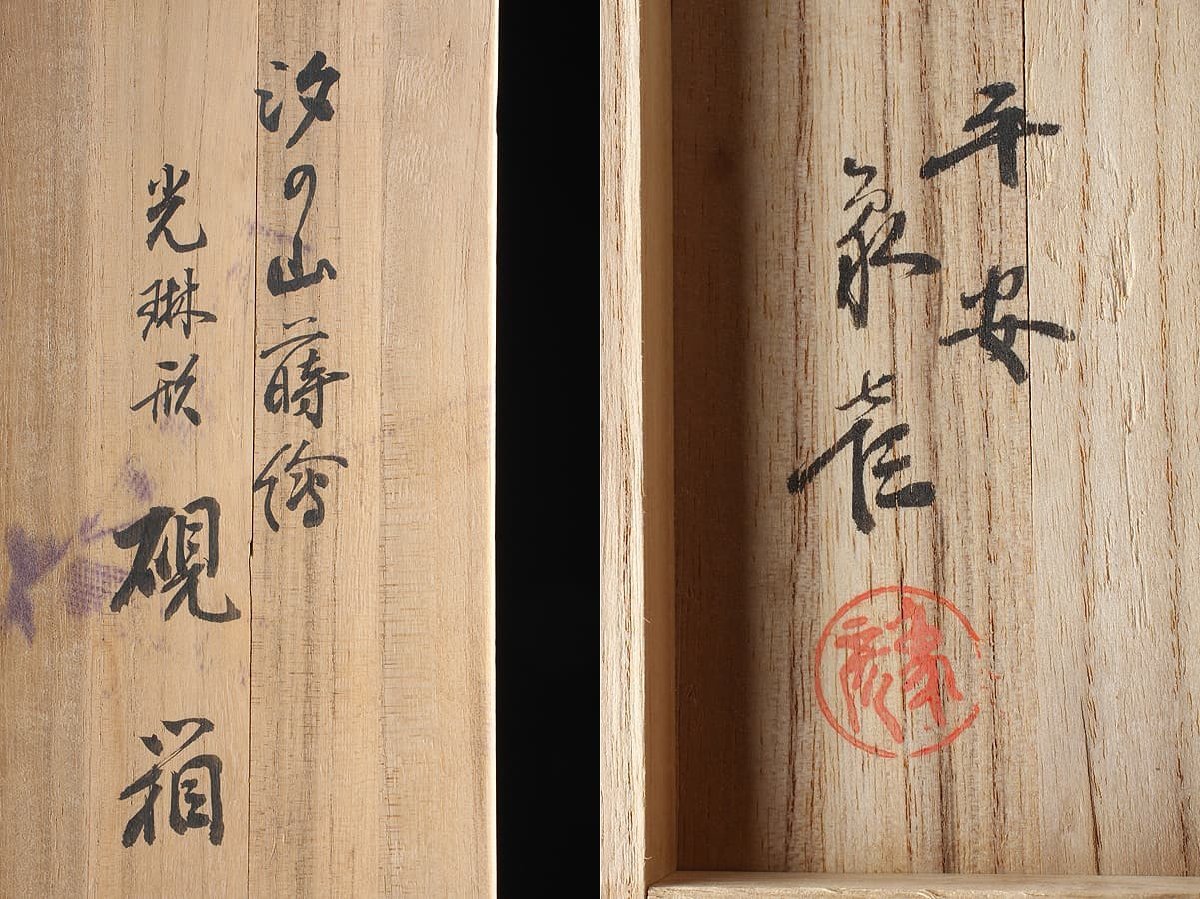 汐の山蒔繪
光琳形 硯箱
平安
象彦